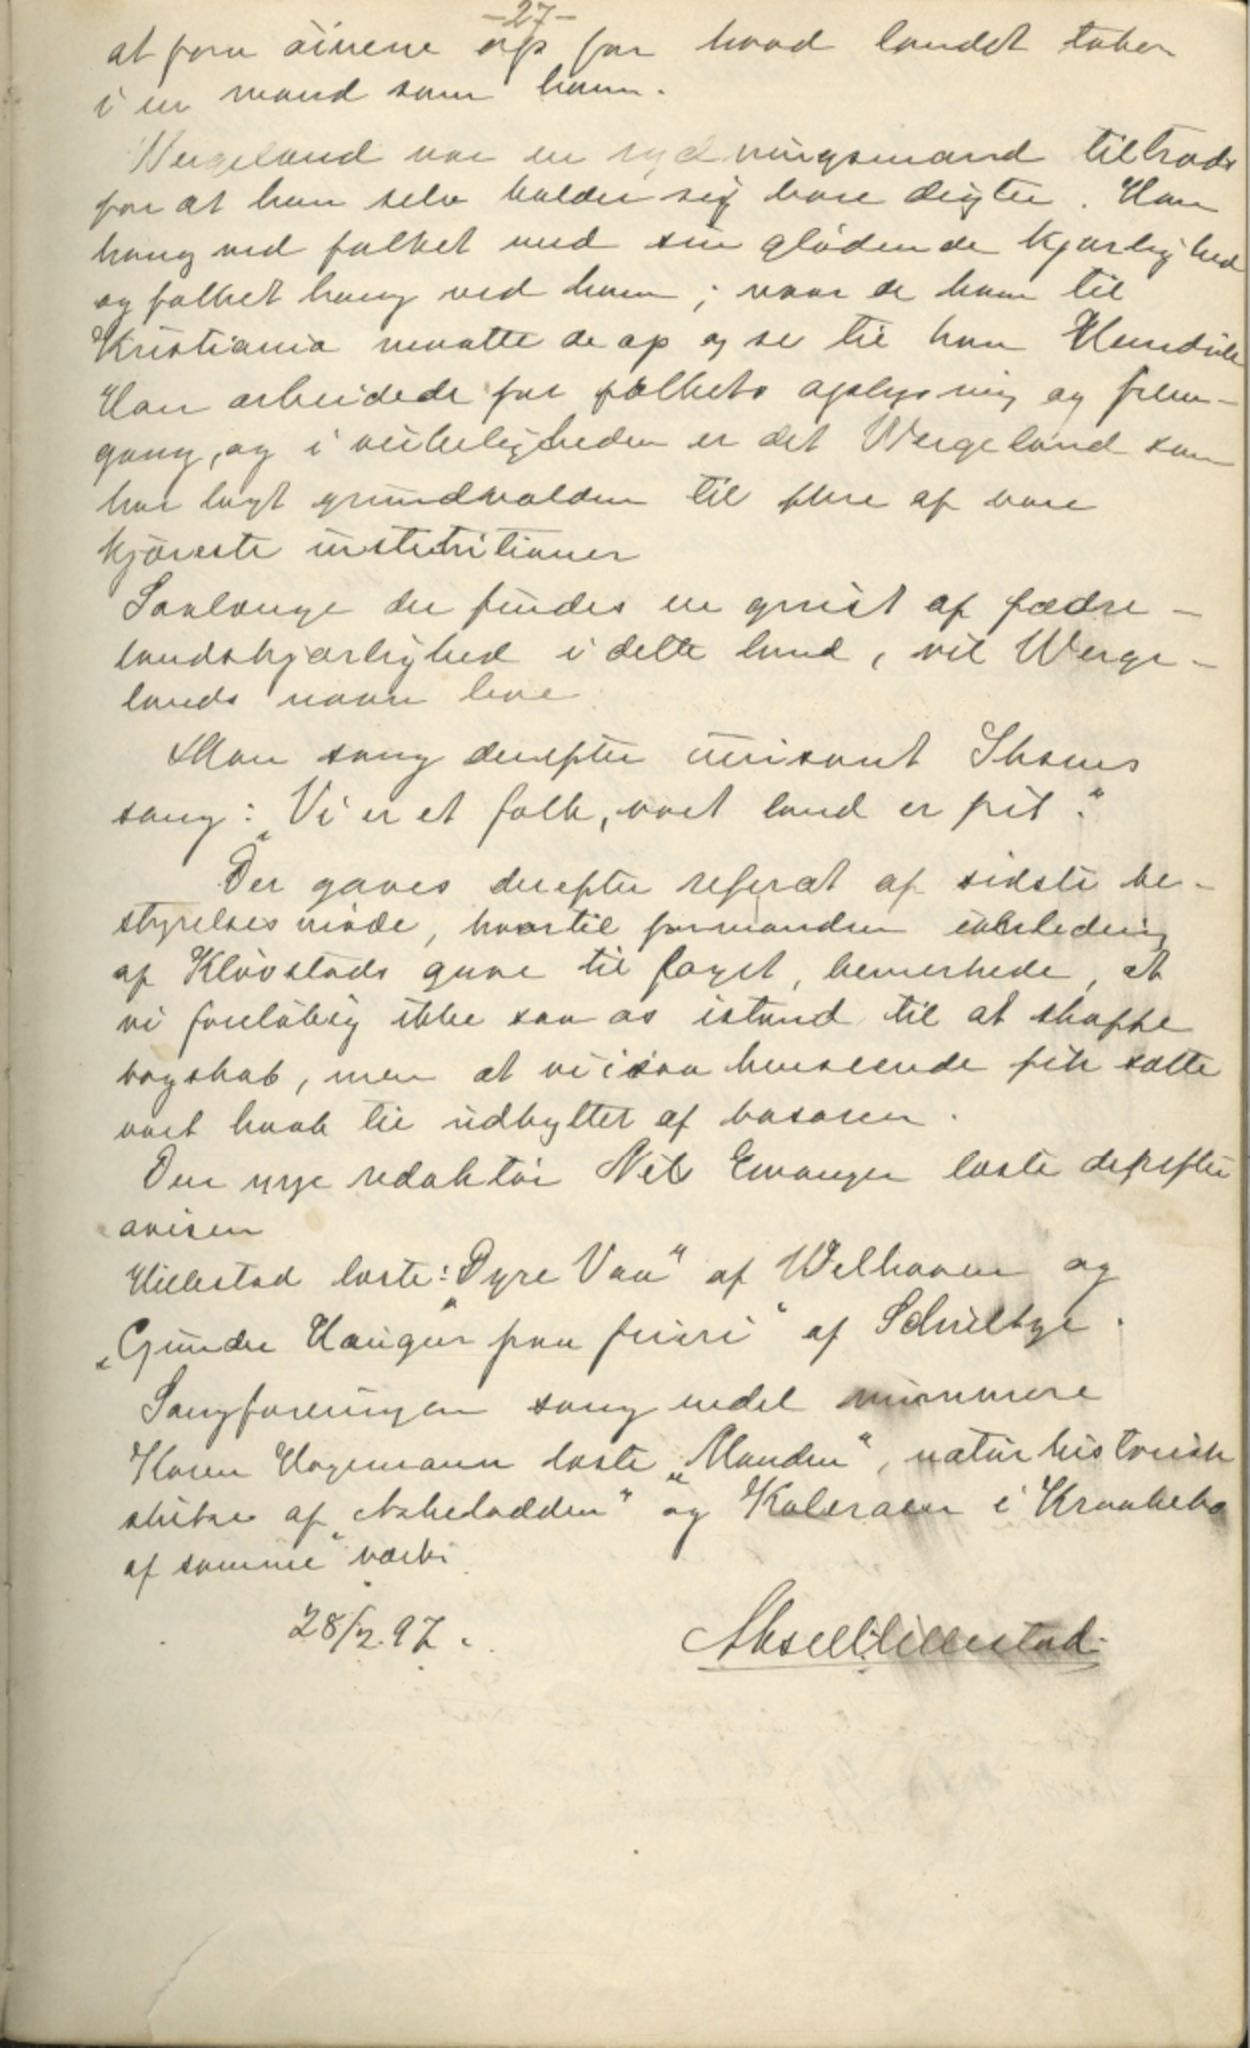 -27-
at faa öinene op for hvad landet taber
i en mand som ham.
Wergeland var en rydningsmand tiltrods
for at han selv kalder sig bare digter. Han
hang ved folket med sin glödende kjærlighed
og folket hang ved ham; naar de kom til
Kristiania maatte de op og se til han Henrik
Han arbeidede for folkets oplysning og frem-
gang, og i virkeligheden er det Wergeland som
har lagt grundvolden til flere af vore
kjæreste institutioner
Saalænge der findes en gnist af fædre-
landskjærlighed i dette land, vil Werge-
lands navn leve
Man sang derefter unisont Ibsens
sang: „Vi er et folk, vort land er frit."
Der gaves derefter referat af sidste be-
styrelsesmöde, hvortil formanden i anledning
af Klövstads gave til laget, bemerkede, at
vi forelöbig ikke saa os istand til at skaffe
bogskab, men at vi i saa henseende fik sætte
vort haab til udbyttet af basaren.
Den nye redaktör Nils Evanger læste derefter
avisen
Hillestad læste: „Dyre Vaa" af Welhaven og
„Gunder Haugen paa frieri" af Schultze.
Sangforeningen sang endel nummere
Karen Hagemann læste „Manden", naturhistorisk
skitse af „Askeladden" og Koleraen i Kraakebo
af samme værk.
28/2. 97.
Aksel Hillestad